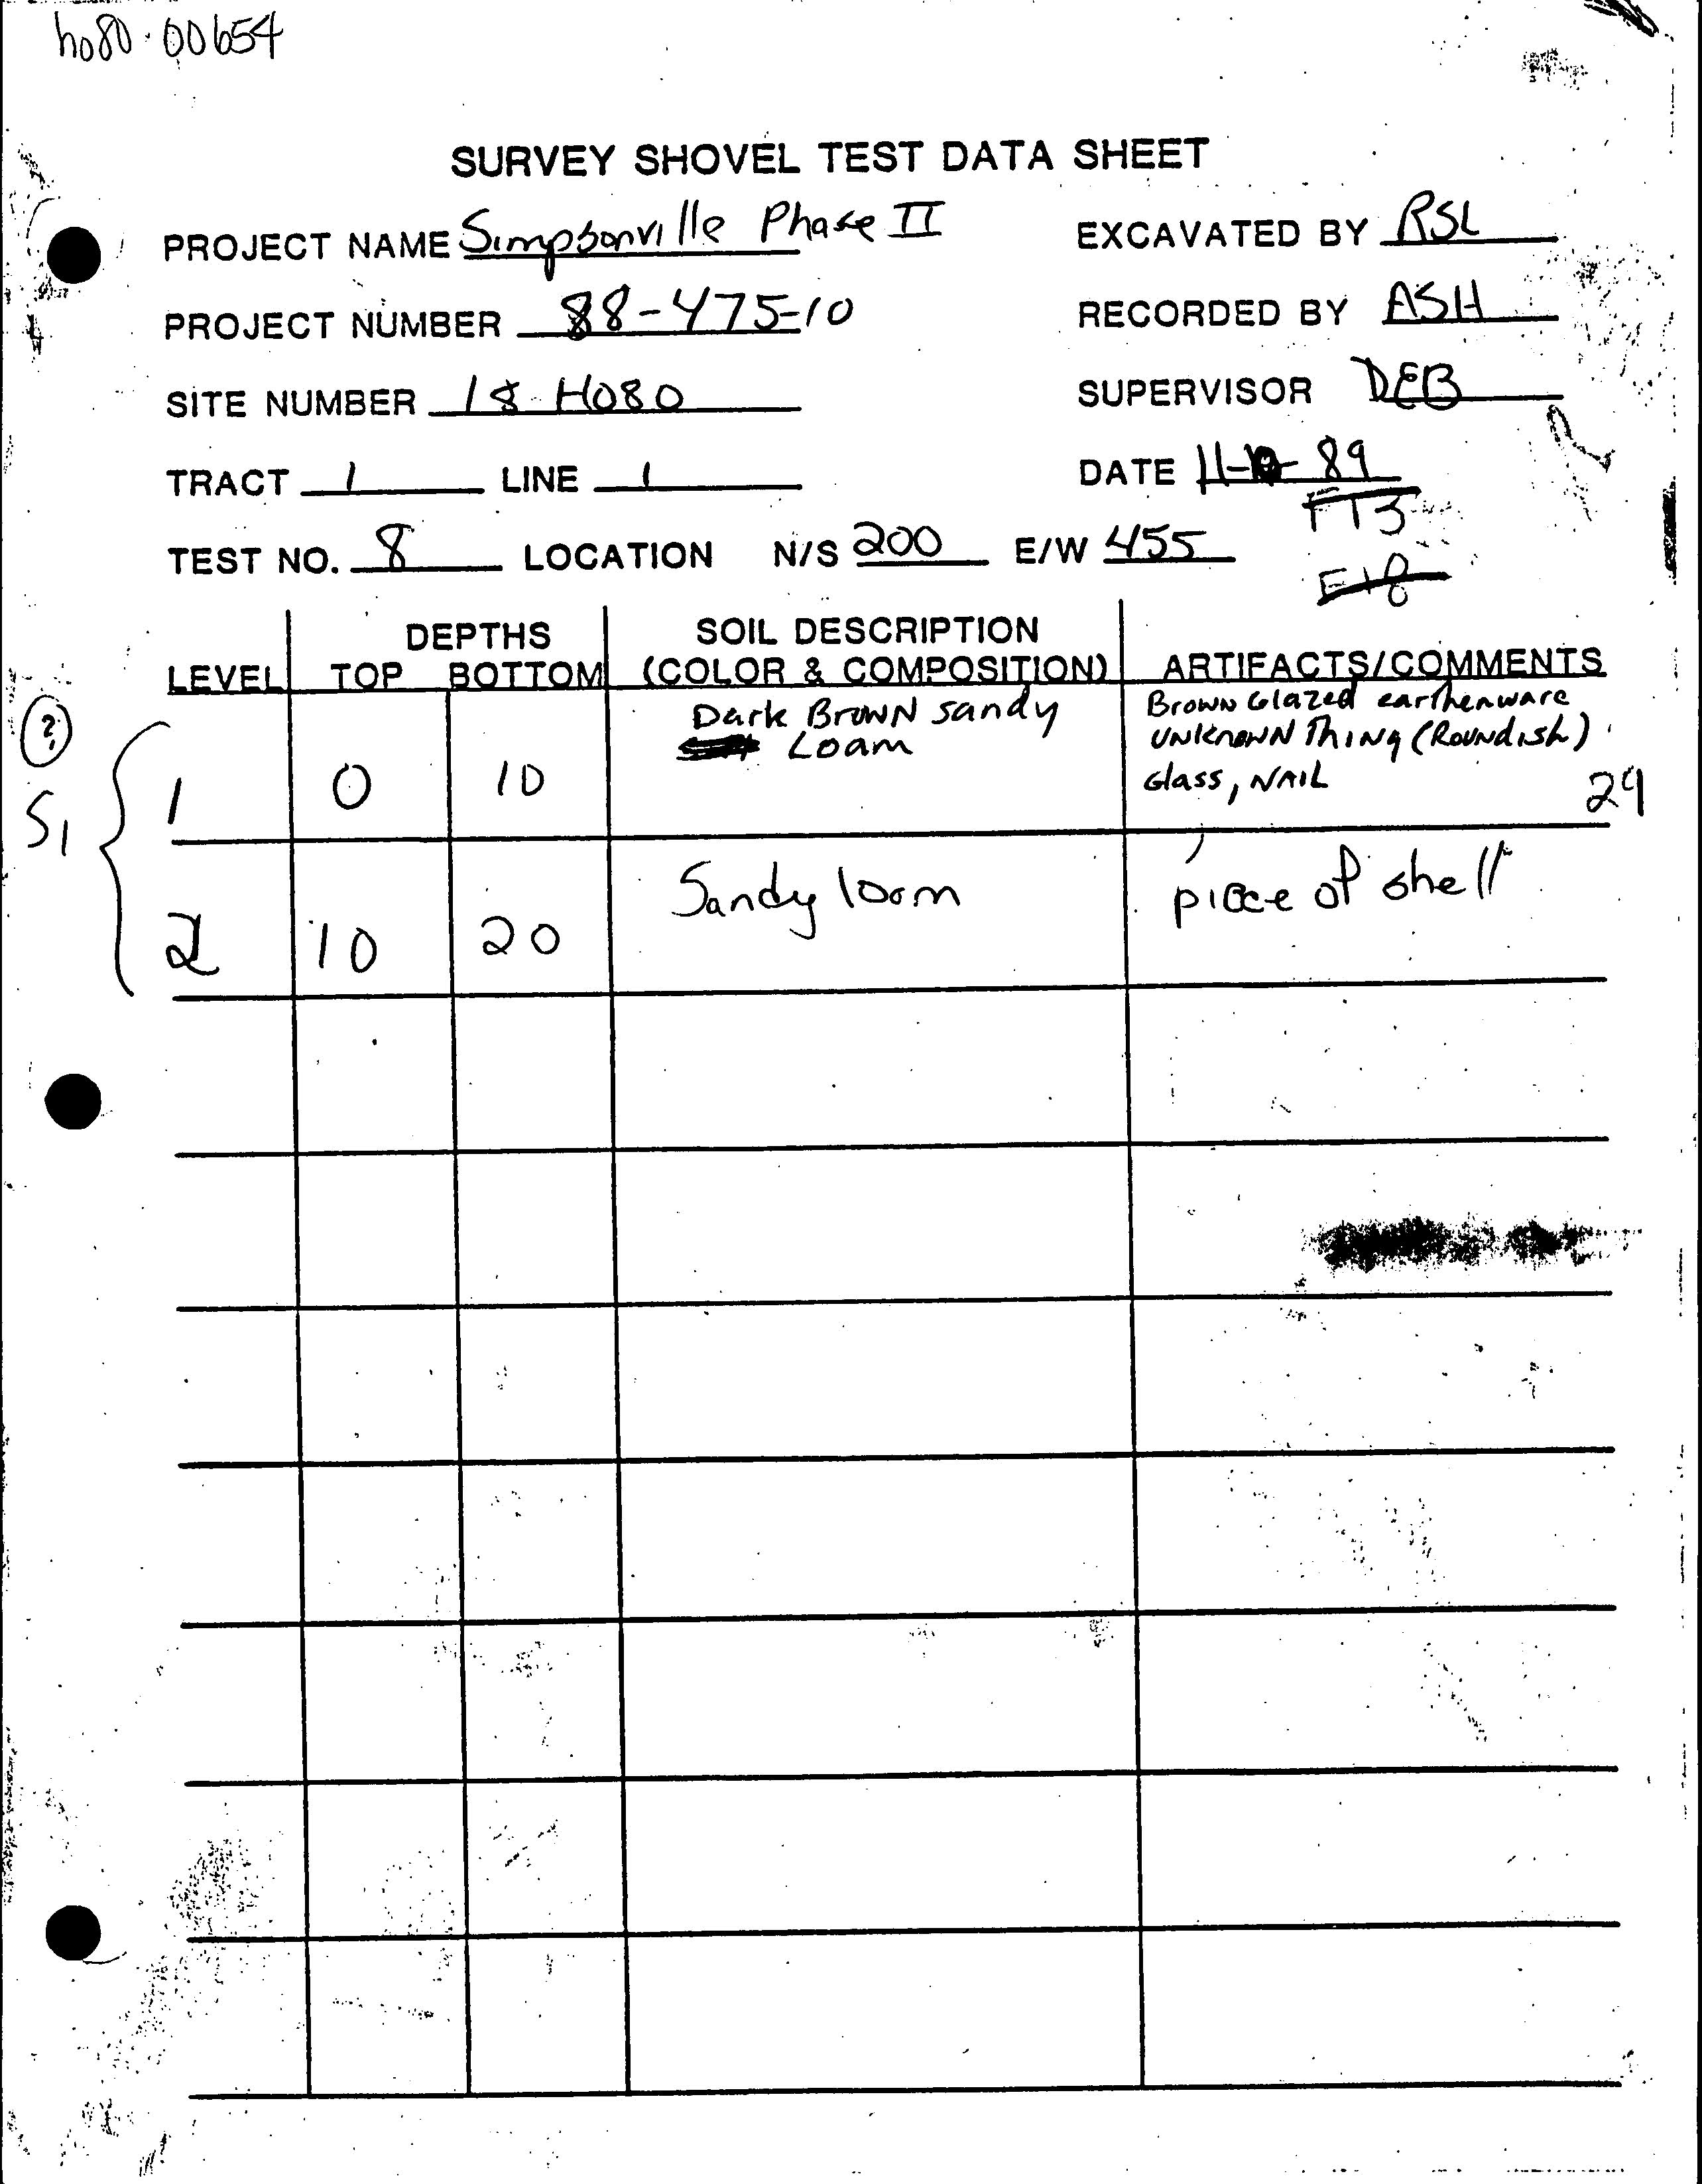 ho80-00654
SURVEY SHOVEL TEST DATA SHEET
PROJECT NAME Simpsonville Phase II
EXCAVATED BY RSL
PROJECT NUMBER 88-475-10
RECORDED BY ASH
SITE NUMBER 18 HO80
SUPERVISOR DEB
TRACT 1 LINE 1
DATE 11- -89
FT3
TEST NO. 8 LOCATION N/S 200 E/W 455
E18
LEVEL
DEPTHS
TOP BOTTOM
SOIL DESCRIPTION
(COLOR & COMPOSITION)
ARTIFACTS/COMMENTS
?
S1
1 0 10
Dark Brown sandy
Loam
Brown Glazed earthenware
UNKNOWN Thing (Roundish)
Glass, NAIL
29
2 10 20
Sandy loam
piece of shell